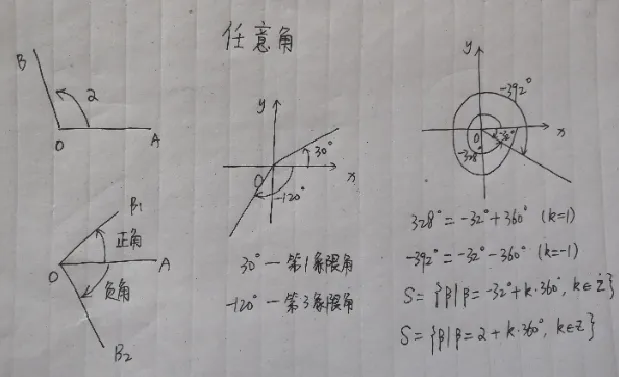 任意角
B
α
O
A
B1
正角
O
A
负角
B2
y
30°
O
x
-120°
30°一第1象限角
-120°一第3象限角
y
-392°
O
x
-32°
-328°
328°=-32°+360° (k=1)
-392°=-32°-360° (k=-1)
S={β|β=-32°+k·360°, k∈Z}
S={β|β=α+k·360°, k∈Z}